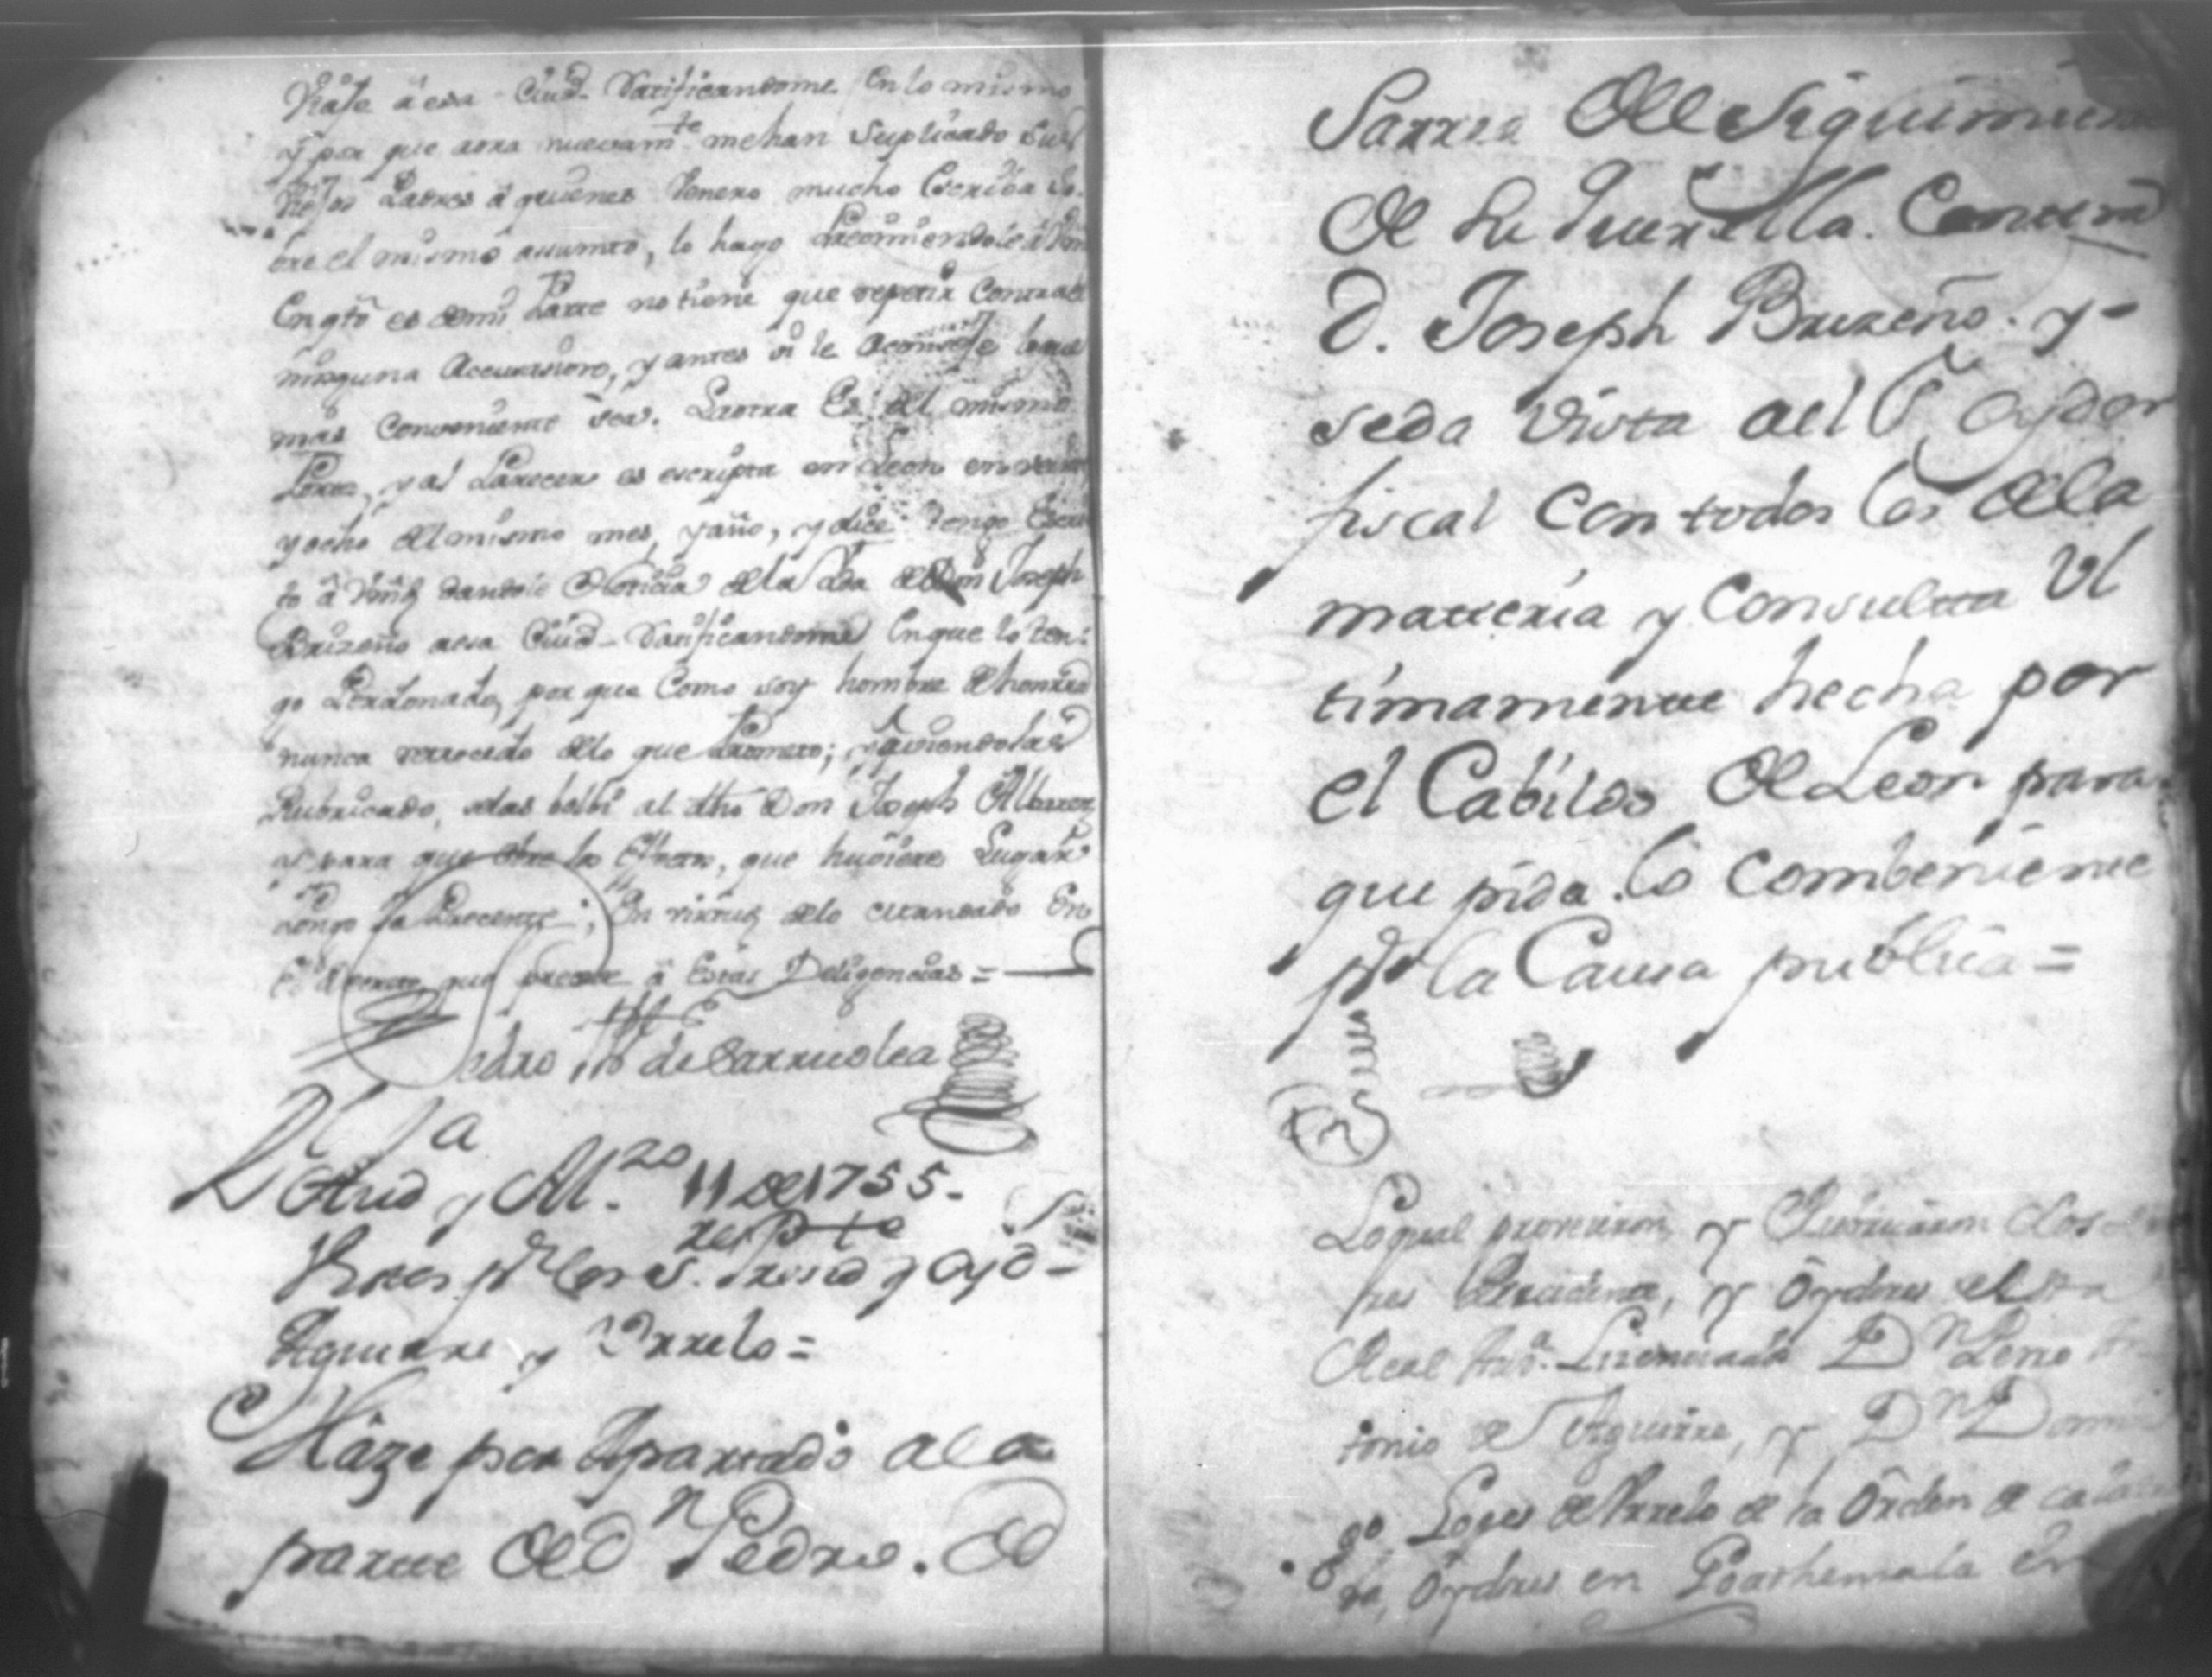 Viaje â esa Ciud. Ratificandome En lo mismo
y por que aora nuevamte. me han Suplicado sus
Viejos Padres â quienes Venero mucho Escriba so-
bre el mismo assumto, lo hago
En qto es demi Parte no tiene que repetir Contra el
ninguna Accusasion, y antes si le Aconseje lo que
mas Conveniente sea. La otra Es del mismo
y al Parecer es escripta en Leon en veinte
y ocho del mismo mes, y año, y dice: Tengo Escri
to â Vmd dandole Noticia de la ida de Don Joseph
Brizeño aesa Ciud. Ratificandome En que lo ten-
go Perdonado, por que Como soy hombre de honrra
nunca retrocedo delo que Prometo;
Rubricado, selas bolbi al dho Don Joseph Albarez
y para que obre los Efectos, que hubiere Lugar
Pongo la Precente; En virtud delo mandado En
el Decreto que precede â Estas Deligencias =
Pedro de Barrueolea
Rl Ja
Aud y M.zo 11 de 1755.
respte
por los S. Presid y Oyd-
Aguirre y Orrelo =
Haze por Apartado a la
parte de Dn Pedro. de
Parrea del Seguimiento
de su Querella. Contra
D. Joseph Brizeño. y
seda Vista ael Sr Oydor
fiscal con todos los dela
matteria y Consultta Ul
timamente hecha por
el Cabildo de Leon para
que pida lo combeniente
pr la Causa publica =
Loqual proveieron, y Rubricaron los
res Presidente, y Oydores desta
Real Auda. Lizenciado Dn
tonio de Aguirre, y Dn Domin
go Lopes de Urrelo de la Orden de Calatra
ba, Oydores en Goathemala En